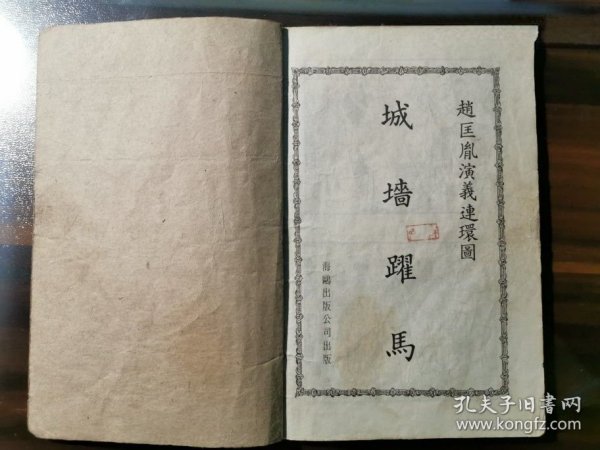 趙匡胤演義連環圖
城墻躍馬
海鷗出版公司出版
孔夫子旧书网
www.kongfz.com